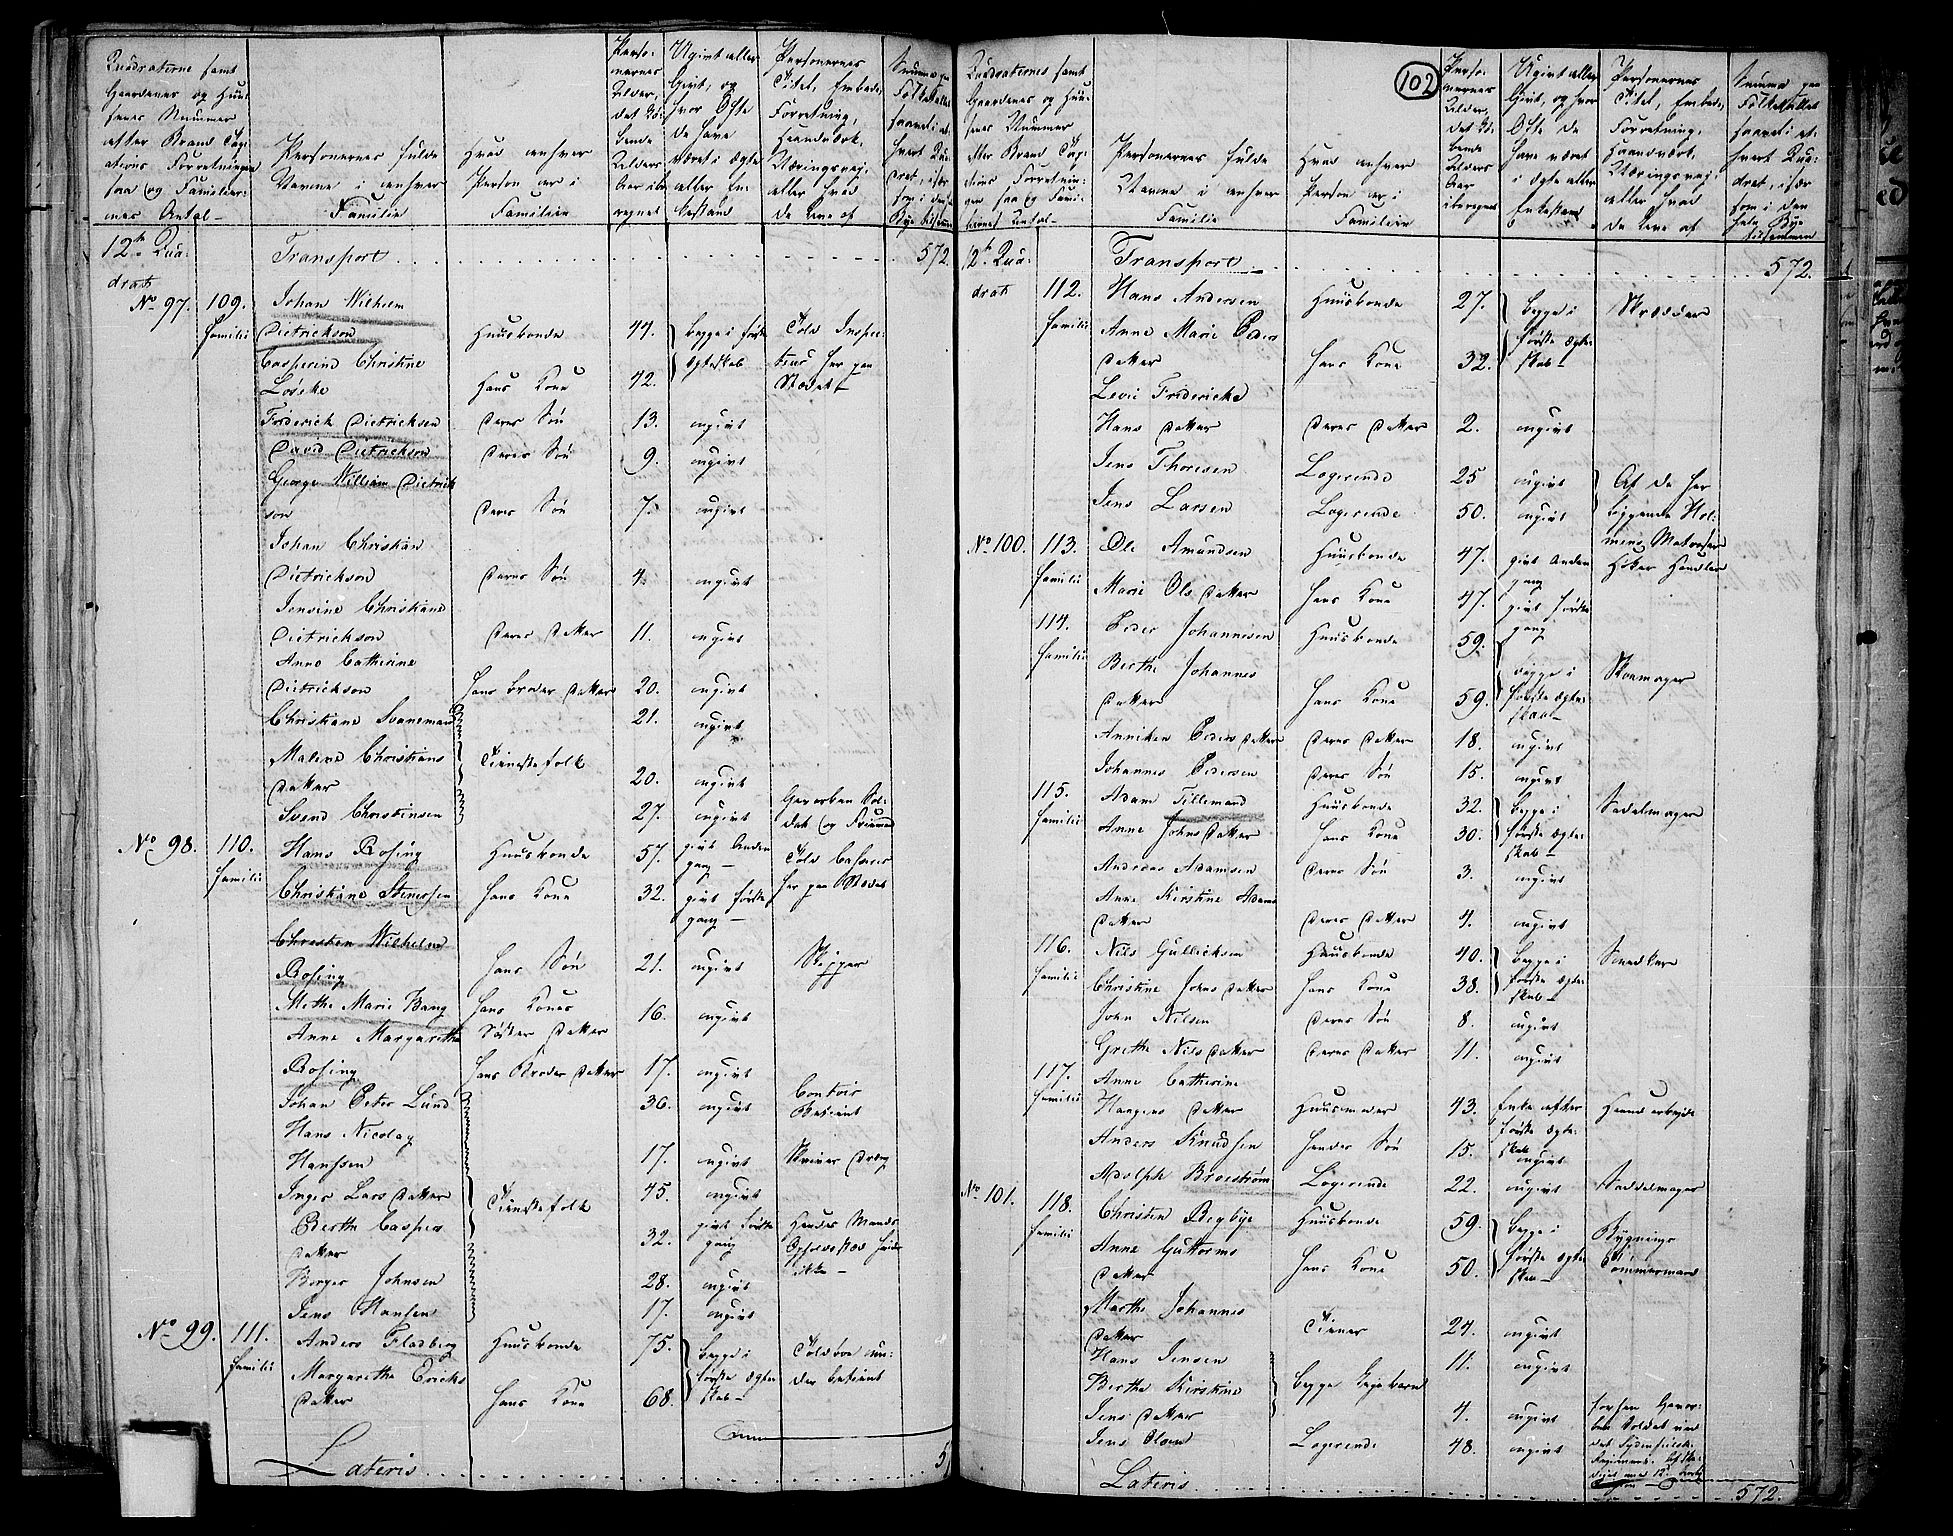 Qvadraterne samt
Gaardenes og Huu-
senes Nummer
efter Brand Tax-
ations Forretningen
saa og Familier-
nes Antal
Personernes fulde
Navne i enhver
Familie
Hvad enhver
Person er i
Familien
Perso-
nernes
Alder,
det lö-
bende
Alders
Aar ibe-
regnet
Ugivt eller
Givt, og
hvor Ofte
de have
været i Ægte
eller En-
kestand
Personernes
Titel, Embede,
Forretning,
Haandværk,
Næringsvej,
eller hvad
de leve af
Summa paa
Folketallet
saavel i et-
hvert Qua-
drat, især
som i den hele
Bye tilsammen
12te Qua-
drat
Transport . . . 572.
No 97. 109. Familie
Johan Wilhelm
Dietrickson Huusbonde 44. begge i første Ægteskab Told Inspec-
teur her paa Stædet
Casperine Christine
Löcke Hans Kone 42.
Friderich Dietricksen Deres Søn 13. ugivt
David Dietrickson Deres Søn 9. ugivt
George William Dietrick
son Deres Søn 7. ugivt
Johan Christian
Dietrickson Deres Søn 4. ugivt
Jensine Christiane
Dietrickson Deres Datter 11. ugivt
Anne Catherine
Dietrickson Hans Broder Datter 20. ugivt
Christiane Svanemand 21. ugivt
Malene Christians
Datter Tienestefolk 20. ugivt
Svend Christensen 27. ugivt Gevorben Sol-
dat og
No 98. 110. Familie
Hans Rosing Huusbonde 57. givt Anden
gang Told Casserer
her paa Stædet
Christiane Stenersen Hans Kone 32. givt første
gang
Christen Wilhelm
Rosing Hans Søn 21. ugivt Skipper
Methe Marie Bang Hans Kones
Søster Datter 16. ugivt
Anne Margarethe
Rosing Hans Broder Datter 17. ugivt
Johan Peter Lund 36. ugivt Contoir
Betient
Hans Nicolay
Hanssen 17. ugivt Skriver Dreng
Inger Lars Datter Tienestefolk 45. ugivt
Berthe Casper
Datter 32. givt første
gang Hendes Mands
Opholdssted vides
ikke
Borger Johnsen 28. ugivt
Jens Hansen 17. ugivt
No 99. 111. Familie
Anders Fladberg Huusbonde 75. begge i
første Ægte-
skab Toldboe un-
der betient
Margarethe Erichs
Datter Hans Kone 68.
Lateris . . . 5
102
Qvadraternes samt
Gaardenes og Huu-
senes Nummer
efter Brand Tax-
ations Forretnin-
gen saa og Fami-
liernes Antal
Personernes fulde
Navne i enhver
Familie
Hvad enhver
Person er i
Familien
Perso-
nernes
Alder,
det lö-
bende
Alders
Aar
iberegnet
Ugivt eller
Givt, og hvor
Ofte de
have været
i Ægte eller
Enkestand
Personernes
Titel, Embede,
Forretning,
Haandværk,
Næringsvej
eller hvad
de leve af
Summa paa
Folketallet
saavel i et-
hvert Qua-
drat, især
som i den
hele Bye
tilsammen
12te Qua-
drat
Transport . . . 572.
112. Familie
Hans Andersen Huusbonde 27. begge i
første Ægte-
skab Skrædder
Anne Marie Peders
Datter Hans Kone 32.
Levie Fredericke
Hans Datter Deres Datter 2. ugivt
Jens Thoresen Logerende 25 ugivt Af de her
liggende Hol-
mens Matroser
Jens Larsen Logerende 50. ugivt
No 100. 113. Familie
Ole Amundsen Huusbonde 47. givt Anden
gang Höker Handler
Marie Ols Datter Hans Kone 47. givt første
gang
114. Familie
Peder Johannesen Huusbonde 59. begge i
første Ægte-
skab Skoemager
Berthe Johannes
Datter Hans Kone 59.
Anniken Peders Datter Deres Datter 18. ugivt
Johannes Pedersen Deres Søn 15. ugivt
115. Familie
Adam Tillemand Huusbonde 32. begge i
første Ægte-
skab Sadelmager
Anne Johns Datter Hans Kone 30.
Andreas Adamsen Deres Søn 3. ugivt
Anne Kirstine Adams
Datter Deres Datter 4. ugivt
116. Familie
Nils Gullicksen Huusbonde 40. begge i
første Ægte-
skab Snedker
Christine Johns Datter Hans Kone 38.
John Nilsen Deres Søn 8. ugivt
Grethe Nils Datter Deres Datter 11. ugivt
117. Familie
Anne Catherine
Haagens Datter Huusmoder 43. Enke efter
første Ægte-
skab Haand arbejde
Anders Knudsen Hendes Søn 15. ugivt
Adolph Broeström Logerende 22. ugivt Saddelmager
No 101. 118. Familie
Christen Bigbye Huusbonde 59. begge i
første Ægte-
skab Bygnings
Tömmermand
Anne Guttorms
Datter Hans Kone 50.
Marthe Johannes
Datter Tiener 24. ugivt
Hans Jensen 11. ugivt
Berthe Kirstine begge Leje børn
Jens Datter 4. ugivt
Jens Olsen Logerende 48. ugivt forhen Gevor-
ben Soldat ved
det
Lateris . . . 572.